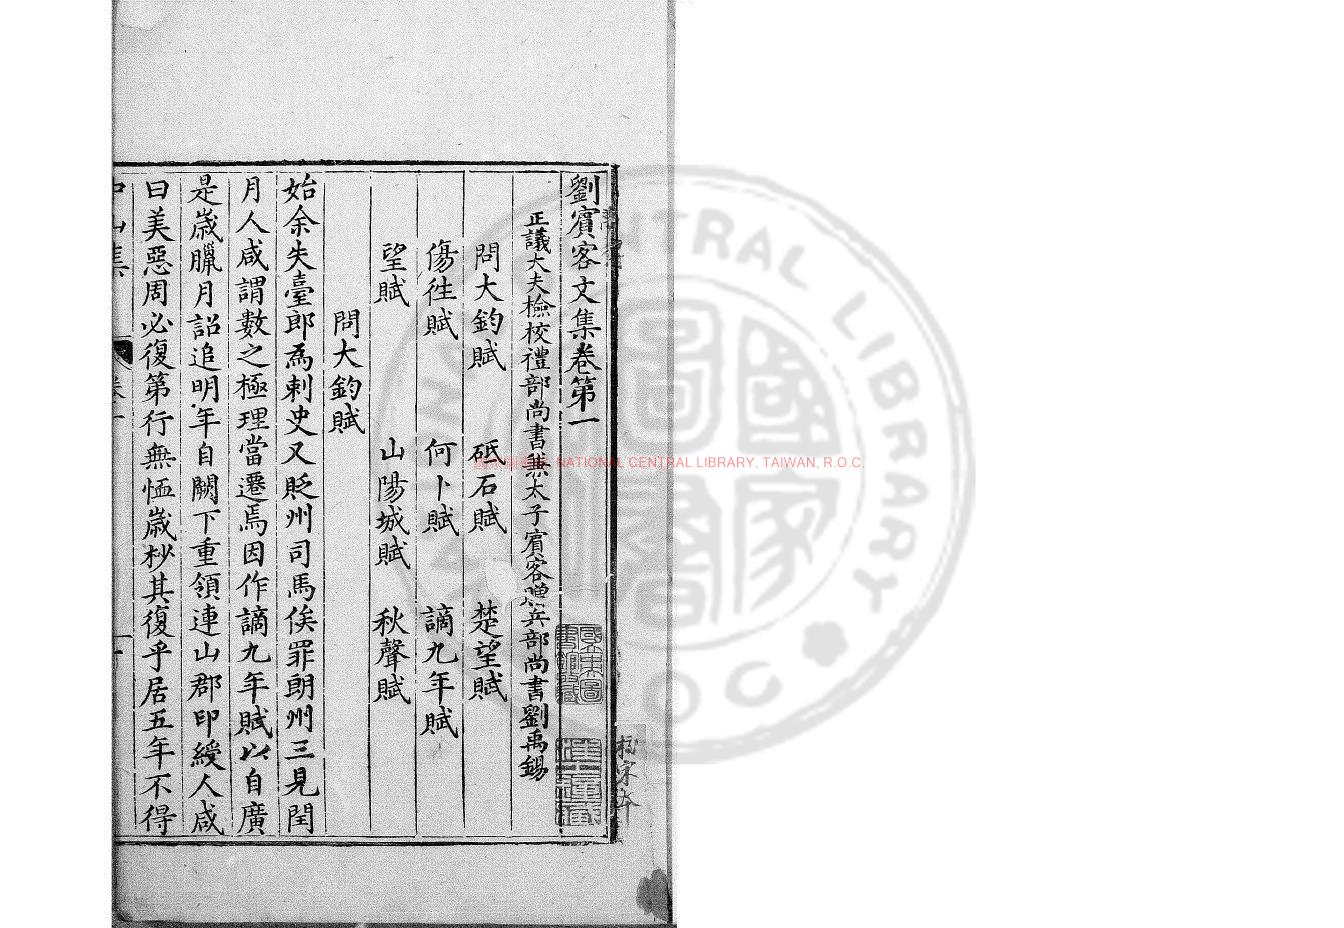 劉賓客文集卷第一
正議大夫檢校禮部尚書兼太子賓客贈兵部尚書劉禹錫
問大鈞賦 砥石賦 楚望賦
傷往賦 何卜賦 謫九年賦
望賦 山陽城賦 秋聲賦
問大鈞賦
始余失臺郎爲刺史又貶州司馬俟罪朗州三見閏
月人咸謂數之極理當遷焉因作謫九年賦以自廣
是歲臘月詔追明年自闕下重領連山郡印綬人咸
曰美惡周必復第行無恤歲杪其復乎居五年不得
中山集 卷一
校宋本
NATIONAL CENTRAL LIBRARY, TAIWAN, R.O.C.